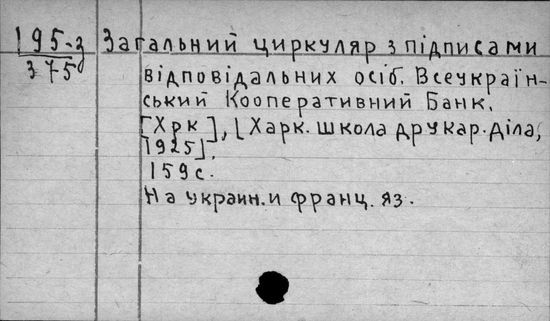 195-з
375
Загальний циркуляр з підписами
відповідальних осіб. Всеукраїн-
ський Кооперативний Банк.
[Хрк], [Харк. школа друкар. діла,
1925].
159 с.
На украин. и франц. яз.